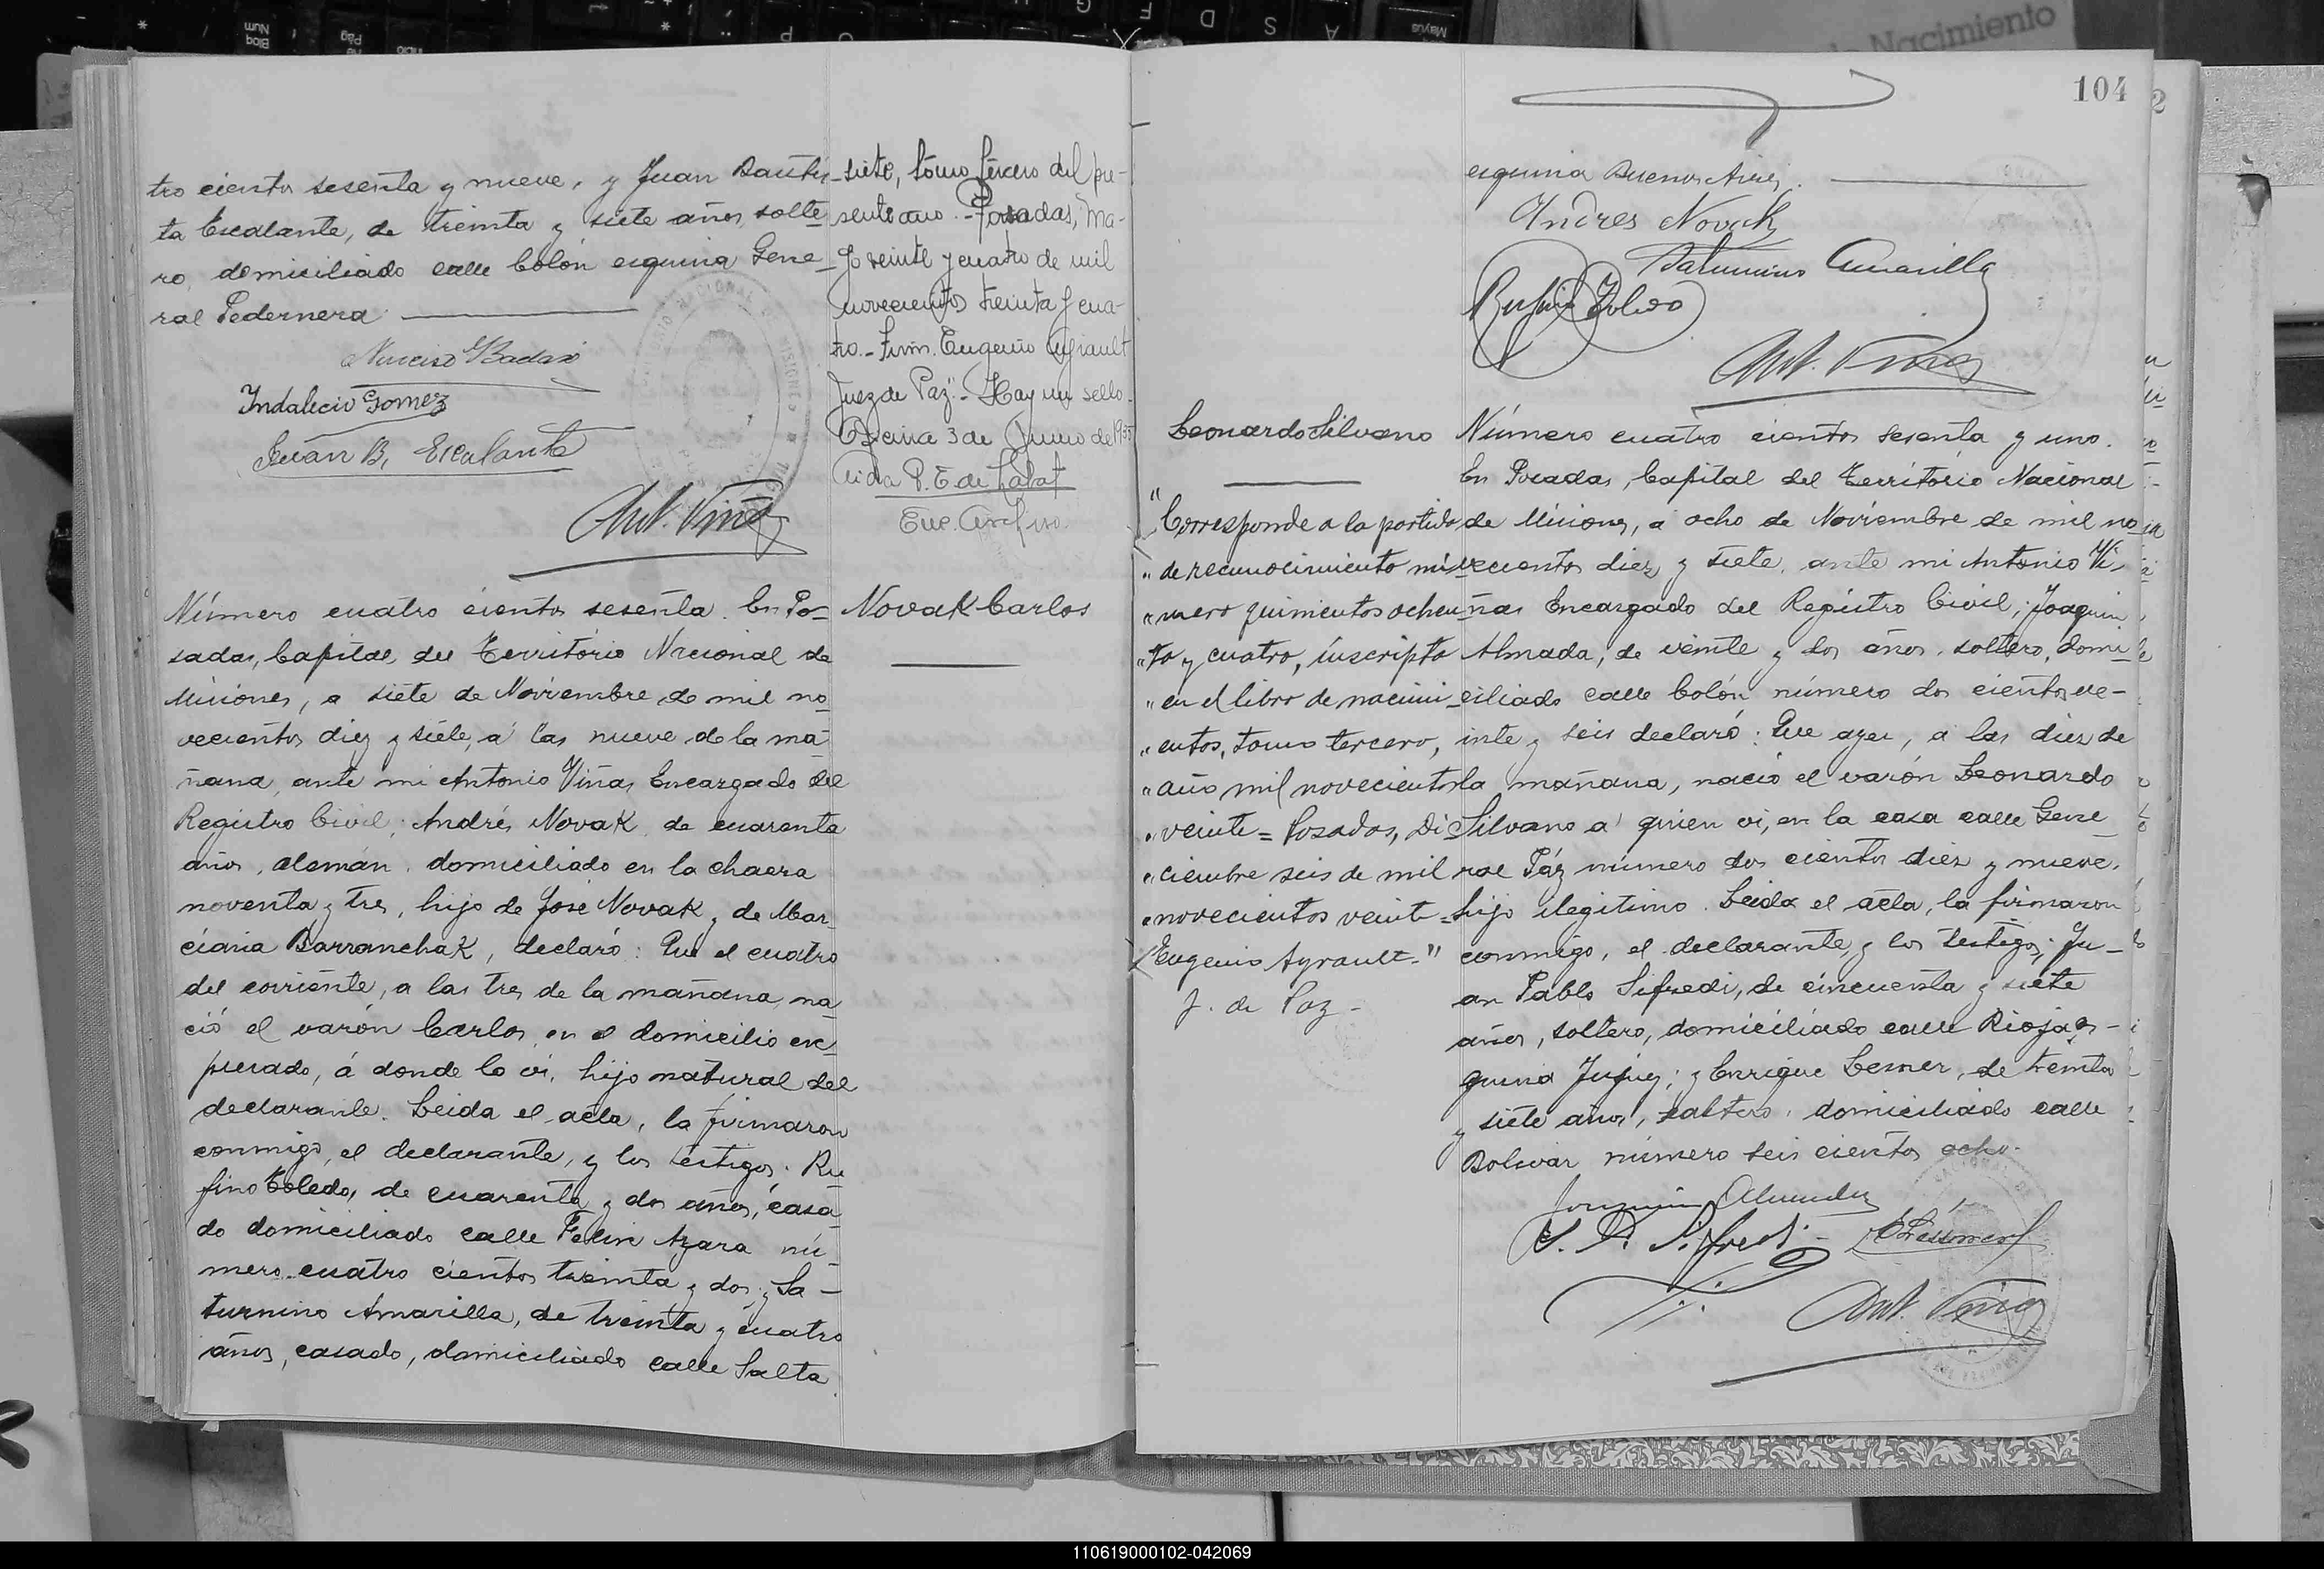 tro cientos sesenta y nueve, y Juan Bautis-
ta Escalante, de treinta y siete años, solte-
ro, domiciliado calle Colón esquina Gene-
ral Pedernera.
Narciso Badaró
Indalecio Gomez
Juan B. Escalante
Ant. Viñas
siete, tomo tercero del pre-
sente año.- Posadas, Ma-
yo veinte y cuatro de mil
novecientos treinta y cua-
tro.- Firm. Eugenio Ayrault
Juez de Paz".- Hay un sello.-
3 de Junio de 1935
Aida P. E. de Labat
Número cuatro cientos sesenta. En Po-
sadas, Capital del Território Nacional de
Misiones, a siete de Noviembre de mil no-
vecientos diez y siete, á las nueve de la ma-
ñana, ante mi Antonio Viñas Encargado del
Registro Civil; Andrés Novak, de cuarenta
años, alemán, domiciliado en la chacra
noventa y tres, hijo de José Novak y de Mar-
ciana Barranchak, declaró: Que el cuatro
del corriente, a las tres de la mañana, na-
ció el varón Carlos, en el domicilio ex-
presado, á donde lo vi, hijo natural del
declarante. Leida el acta, la firmaron
conmigo, el declarante, y los testigos: Ru-
fino Toledo, de cuarenta y dos años, casa-
do domiciliado calle Felix Azara nú-
mero cuatro cientos treinta y dos; y Sa-
turnino Amarilla, de treinta y cuatro
años, casado, domiciliado calle Salta
Novak Carlos
104
esquina Buenos Aires.
Andres Novak
Saturnino Amarilla
Rufino Toledo
Ant. Viñas
Leonardo Silvano
"Corresponde a la partida
" de reconocimiento nú-
" mero quinientos ochen-
" ta y cuatro, inscripta
" en el libro de nacimi-
" entos, tomo tercero,
" año mil novecientos
" veinte= Posadas, Di-
" ciembre seis de mil
" novecientos veinte=
"Eugenio Ayrault-"
J. de Paz-
Número cuatro cientos sesenta y uno.
En Posadas, Capital del Território Nacional
de Misiones, a ocho de Noviembre de mil no-
vecientos diez y siete, ante mi Antonio Vi-
ñas Encargado del Registro Civil; Joaquin
Almada, de veinte y dos años, soltero, domi-
ciliado calle Colón número dos cientos ve-
inte y seis declaró: Que ayer, a las diez de
la mañana, nació el varón Leonardo
Silvano a quien vi, en la casa calle Gene-
ral Páz número dos cientos diez y nueve,
hijo ilegitimo. Leida el acta, la firmaron
conmigo, el declarante, y los testigos; Ju-
an Pablo Sifredi, de cincuenta y siete
años, soltero, domiciliado calle Rioja es-
quina Jujuy; y Enrique Lesner, de treinta
y siete años, soltero, domiciliado calle
Bolivar número seis cientos ocho.
Joaquin Almada
J. P. Sifredi
Ant. Viñas
110619000102-042069